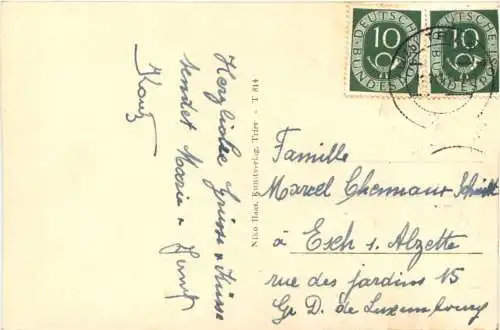 Herzliche Grüsse u. Küsse
sendet Marie u.
Niko Haas, Kunstverlag, Trier - T 814
DEUTSCHE
BUNDESPOST
10
DEUTSCHE
BUNDESPOST
10
Famille
Marcel
à Esch s. Alzette
rue des jardins 15
Gr D. de Luxembourg